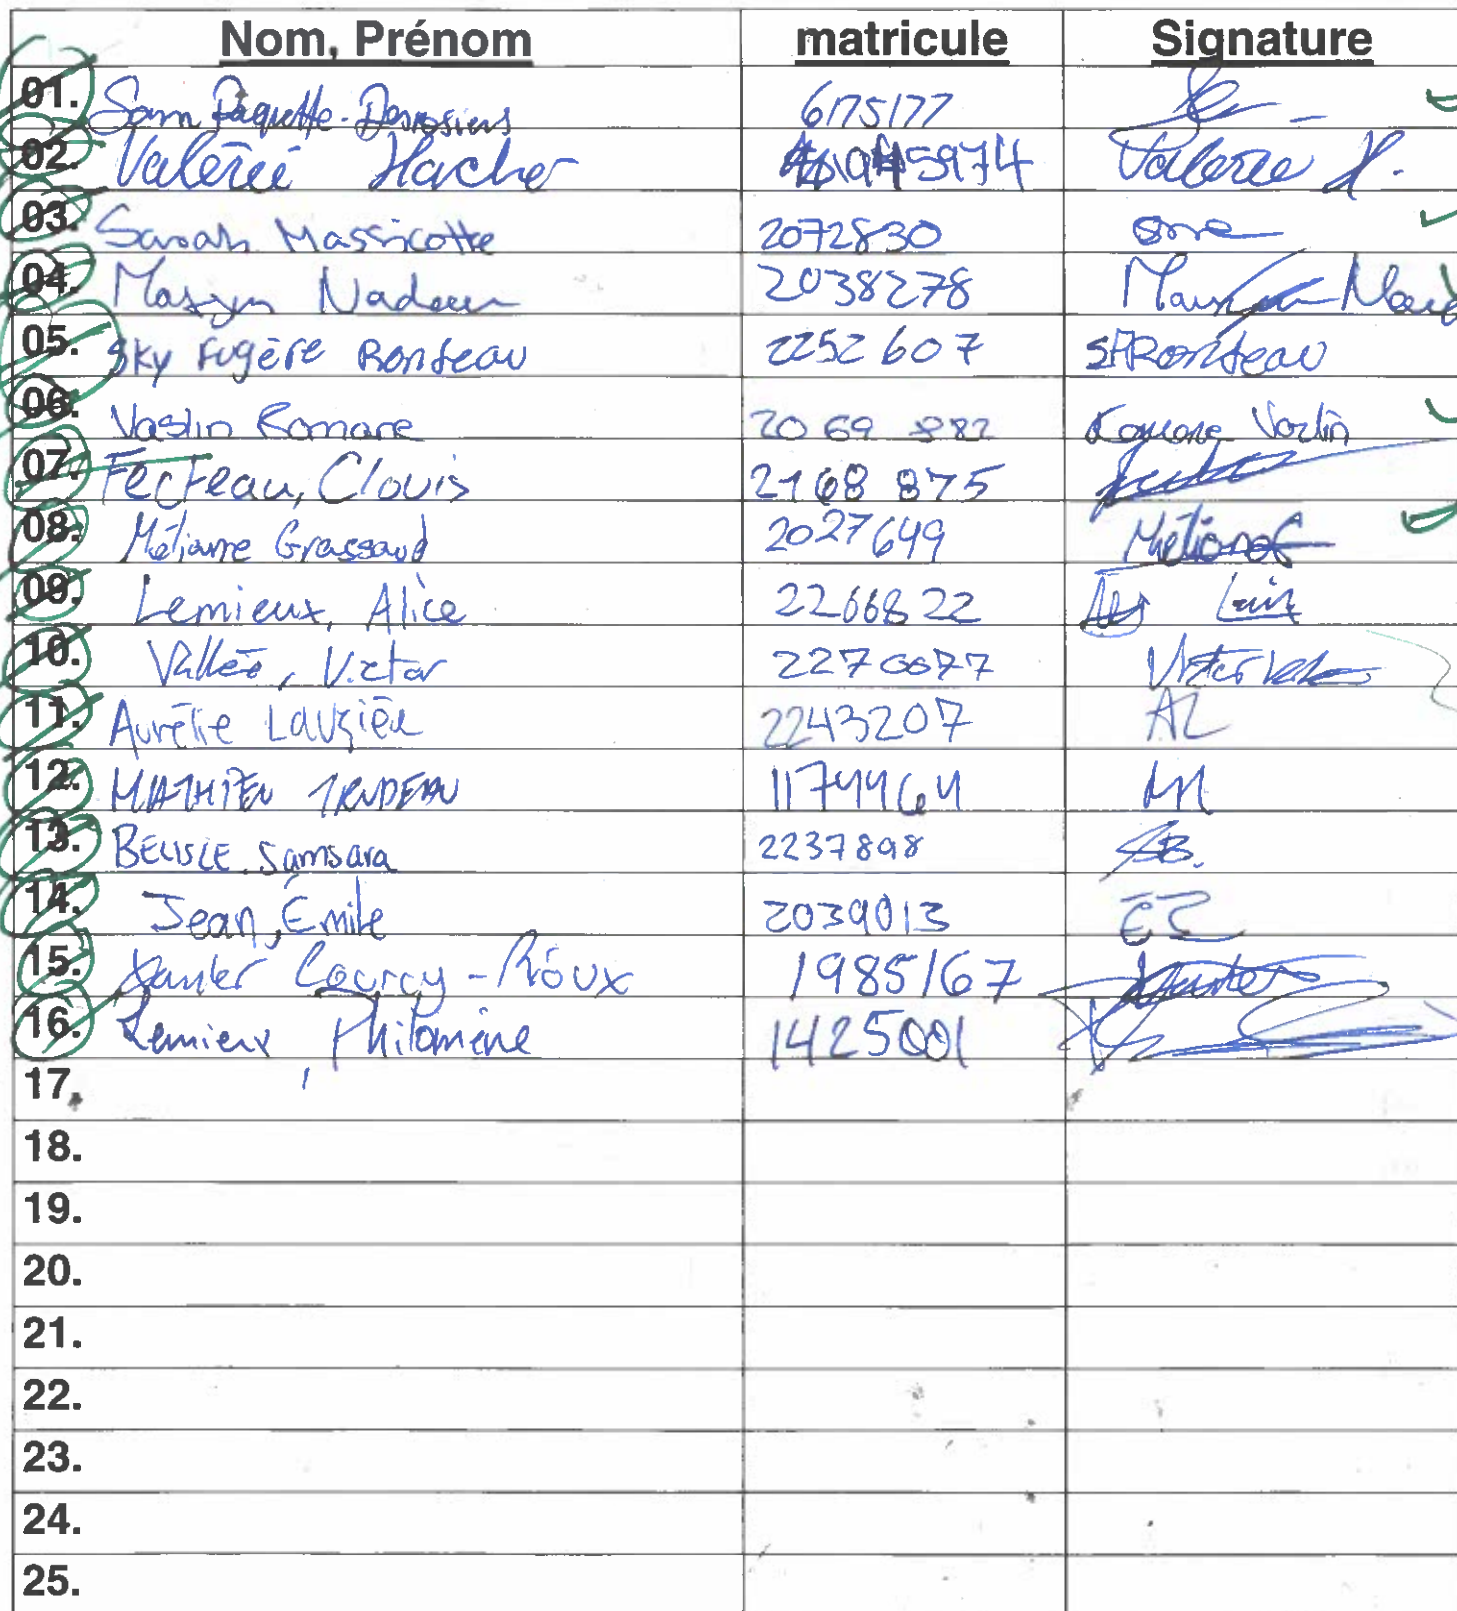 Nom, Prénom matricule Signature
01. Sam Paquette-Desrosiers 6175177
02. Valérie Hacher 1945974 Valérie H.
03. Sarah Massicotte 2072830
04. Maxym Nadeau 2038278
05. Sky Fugère Ronfeau 2252607 SFRonfeau
06. Vastin Romane 2069 882 Romane Vastin
07. Fecteau, Clovis 2168 875
08. Méliane Grassaud 2027649 Méliane G
09. Lemieux, Alice 2266822
10. Vallée, Victor 2270077
11. Aurélie Lauzière 2243207 AL
12. MATHIEU TRUDEAU 11744964
13. BELISLE Samsara 2237898 SB.
14. Jean, Émile 2039013 ÉJ
15. Xavier Courcy-Rioux 1985167
16. Lemieux, Philomène 1425001
17.
18.
19.
20.
21.
22.
23.
24.
25.